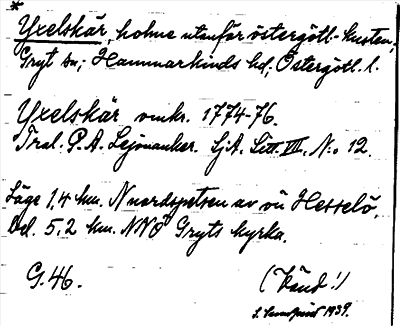 *
Yxelskär, holme utanför östergötl-kusten,
Gryt sn; Hammarkinds hd; Östergötl. l.
Yxelskär omkr. 1774-76.
Tral. P. A. Lejonanker. LjA. Litt. III. No 12.
Läge 1,4 km. N nordspetsen av ön Hesselö,
5,2 km. NNO Gryts kyrka.
G. 46.
(Känd!)
1939.